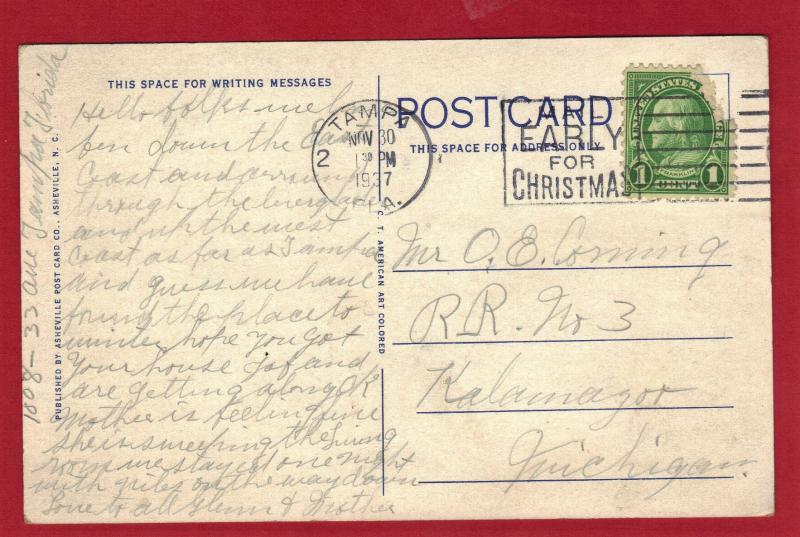 THIS SPACE FOR WRITING MESSAGES
Hello folks we have
ben down the East
Coast and across
through the Everglades
and up the west
Coast as far as Tampa
and guess we have
found the place to
winter hope you got
your house Tof and
are getting along OK
Mother is feeling fine
she is sweeping the living
room we stayed one night
with on the way down
Love to all Glenn & Mother
1808-33 ave Tampa Florida
PUBLISHED BY ASHEVILLE POST CARD CO., ASHEVILLE, N. C.
C. T. AMERICAN ART COLORED
TAMPA
NOV 30
1 30 PM
1937
2
A.
POST CARD
THIS SPACE FOR ADDRESS ONLY
MAIL
EARLY
FOR
CHRISTMAS
UNITED STATES
FRANKLIN
1 CENT 1
Mr O. E. Corning
R.R. No 3
Kalamazoo
Michigan.